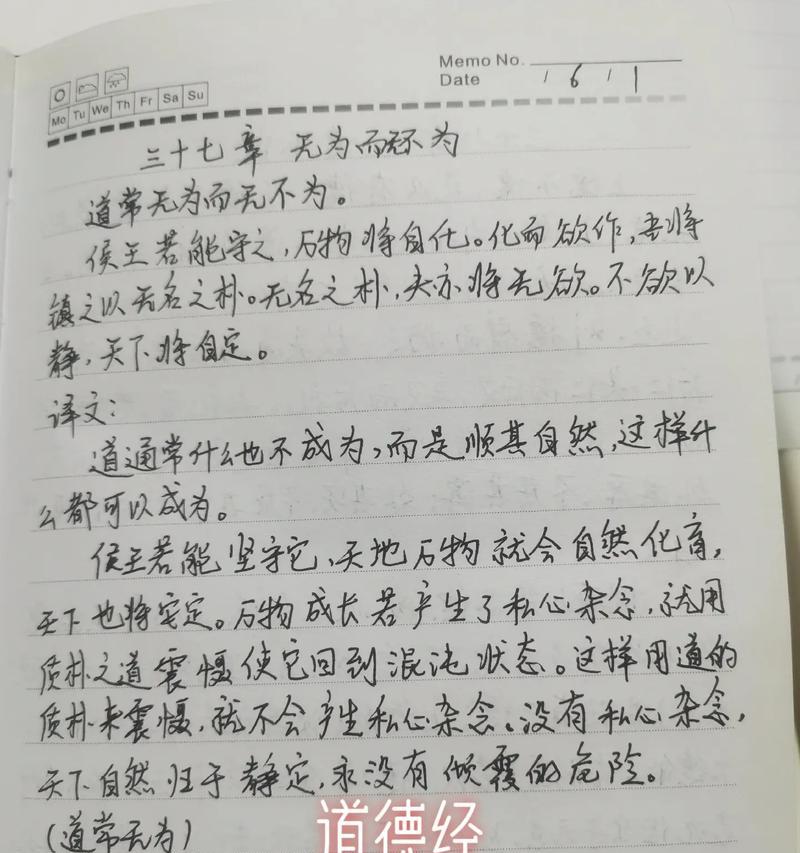 Memo No.
Mo Tu We Th Fr Sa Su
Date / 6 / 1
三十七章 无为而无不为
道常无为而无不为。
侯王若能守之,万物将自化。化而欲作,吾将
镇之以无名之朴。无名之朴,夫亦将无欲。不欲以
静,天下将自定。
译文:
道通常什么也不成为,而是顺其自然,这样什
么都可以成为。
侯王若能坚守它,天地万物就会自然化育,
天下也将安定。万物成长若产生了私心杂念,就用
质朴之道震慑使它回到混沌状态。这样用道的
质朴来震慑,就不会产生私心杂念。没有私心杂念,
天下自然归于静定,永没有倾覆的危险。
(道常无为)
道德经